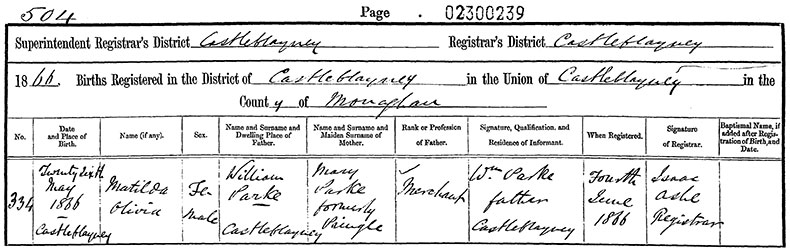 504 Page . 02300239
Superintendent Registrar's District Castleblayney Registrar's District Castleblayney
1866. Births Registered in the District of Castleblayney in the Union of Castleblayney in the
County of Monaghan
No. Date and Place of Birth. Name (if any). Sex. Name and Surname and Dwelling Place of Father. Name and Surname and Maiden Surname of Mother. Rank or Profession of Father. Signature, Qualification, and Residence of Informant. When Registered. Signature of Registrar. Baptismal Name, if added after Registration of Birth, and Date.
334 Twenty sixth May 1866 Castleblayney Matilda Olivia Female William Parke Castleblayney Mary Parke formerly Pringle Merchant Wm Parke father Castleblayney Fourth June 1866 Isaac Ashe Registrar